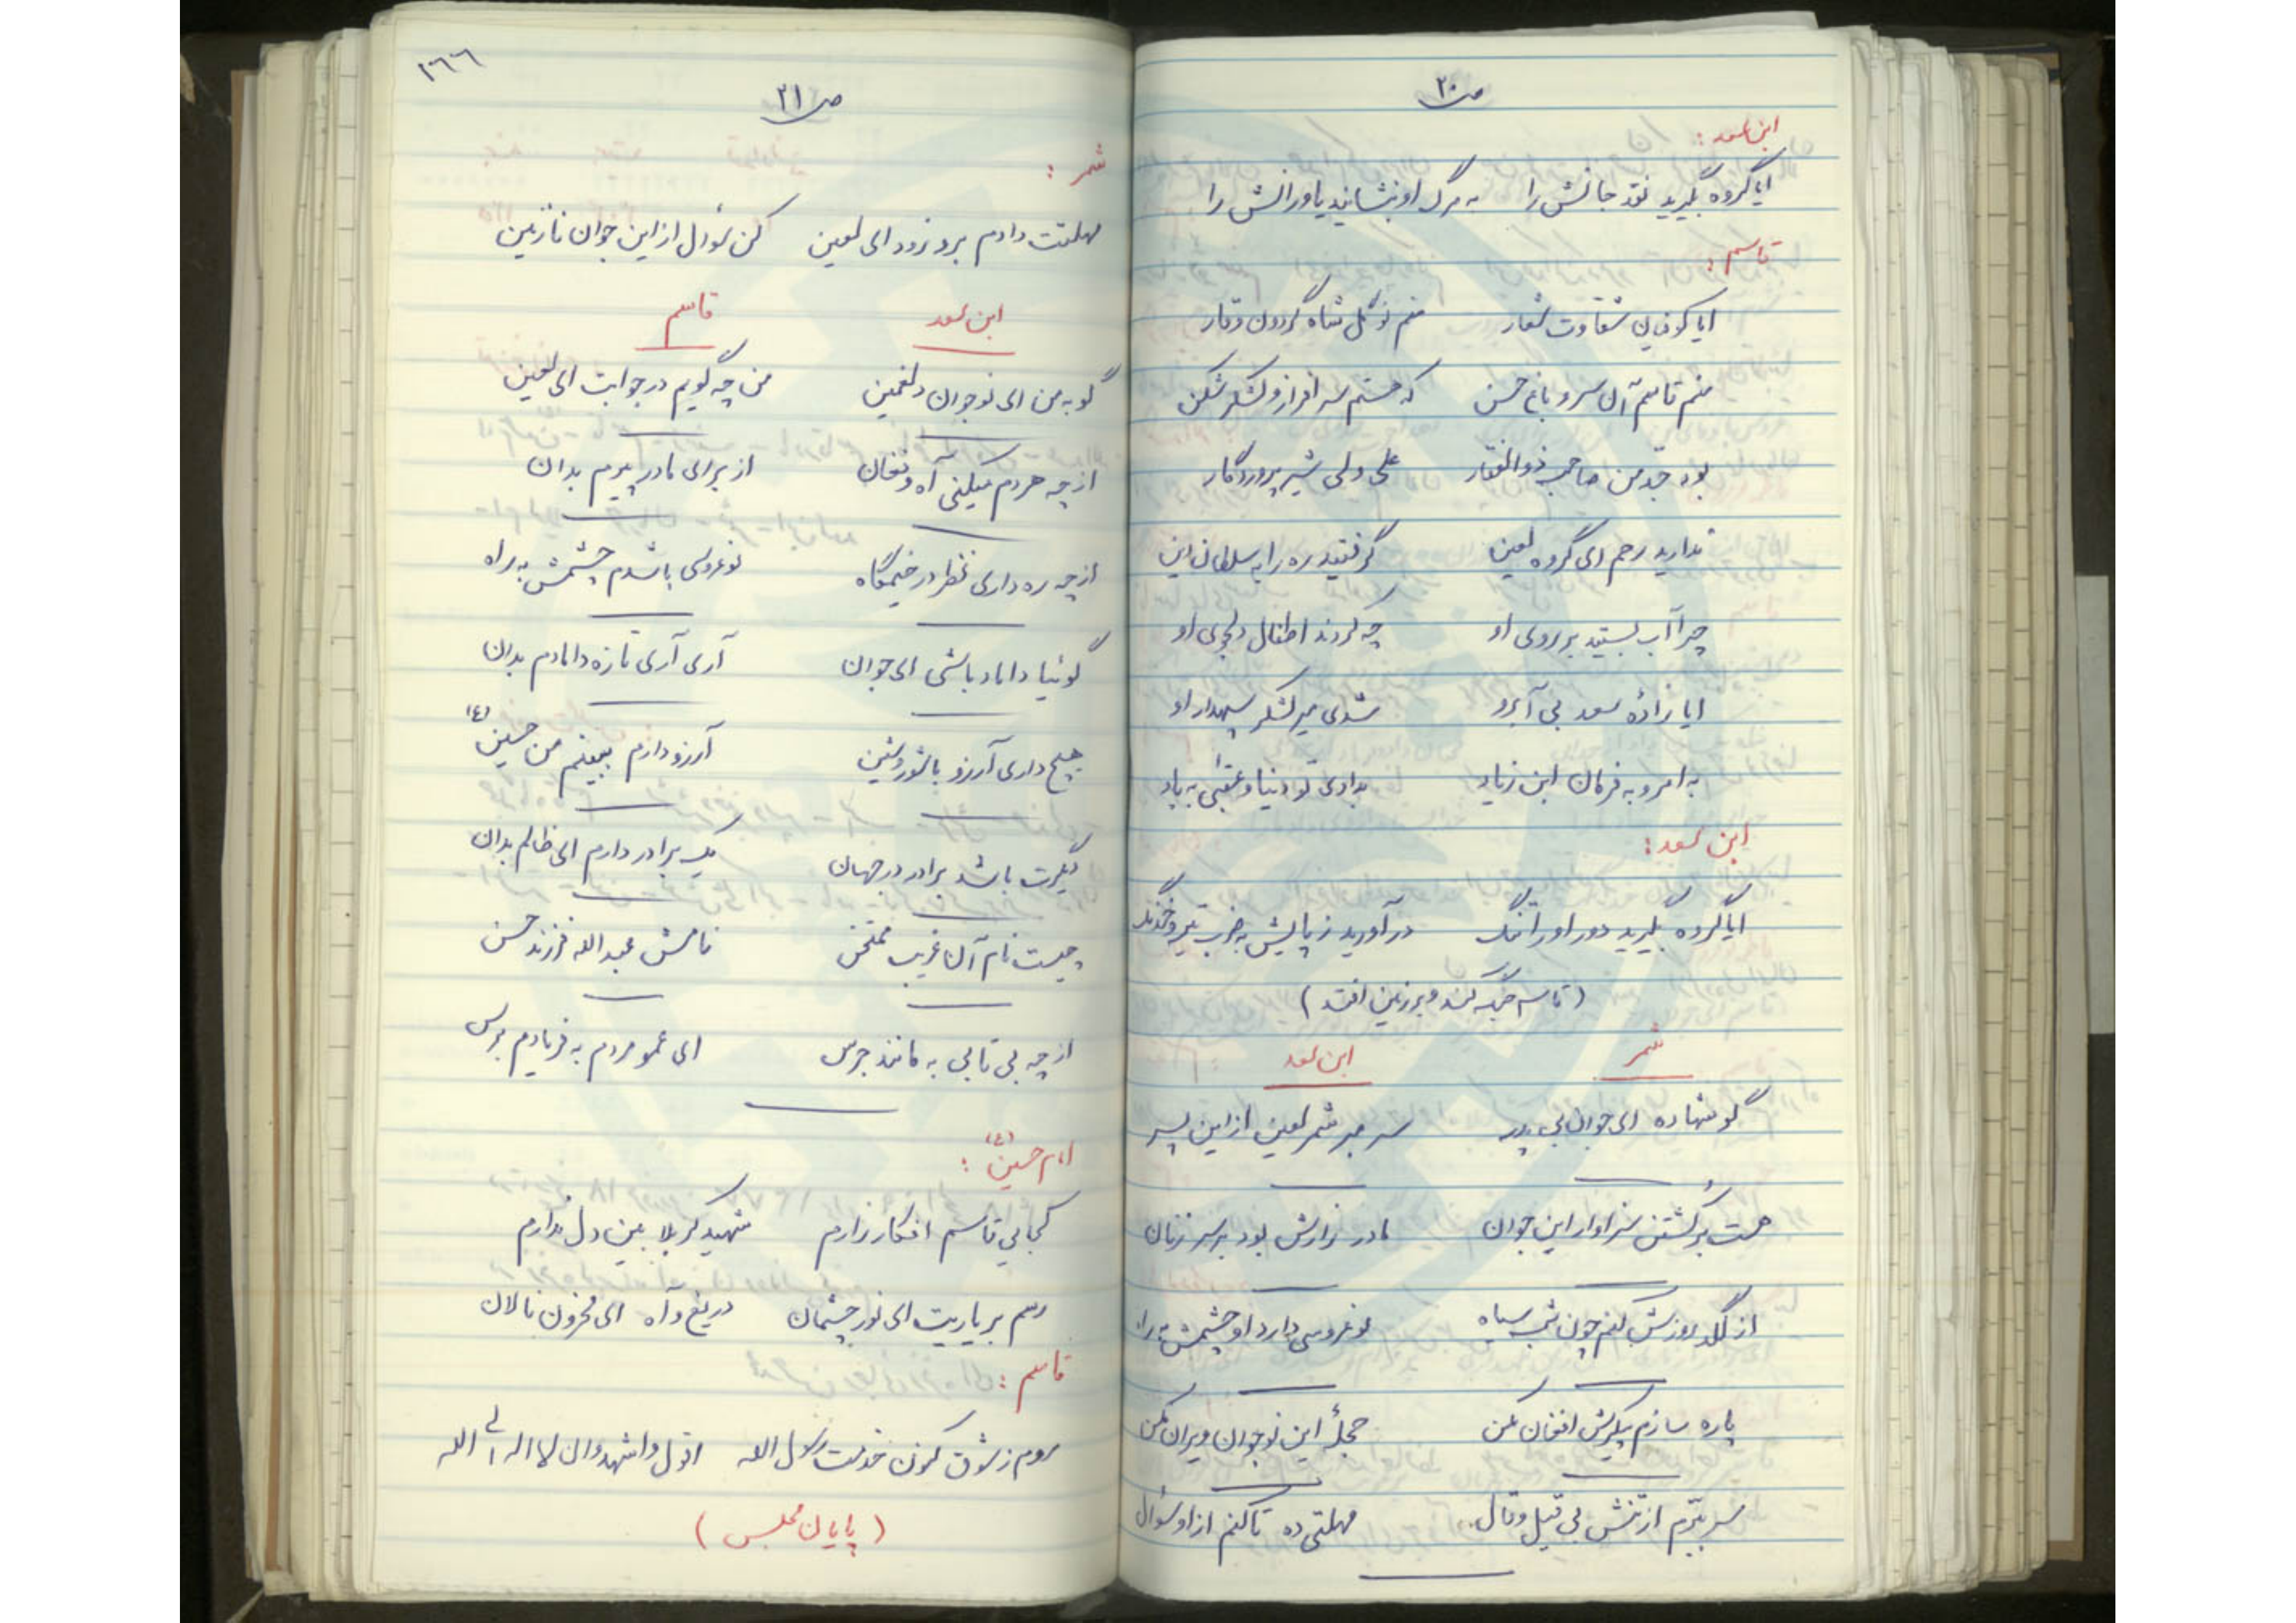 ص ۲۰
ابن سعد:
ایا گروه بگیرید نقد جانش را به مرگ او بنشانید یاورانش را
قاسم:
ایا کوفیان شقاوت شعار منم نوگل شاه گردون وقار
منم قاسم آن سرو باغ حسن که هستم سر افراز و لشکر شکن
بود جد من صاحب ذوالفقار علی ولی شیر پروردگار
ندارید رحم ای گروه لعین گرفتید ره را به سلطان این
چرا آب بستید بر روی او چه کردند اطفال دلجوی او
ایا زادهٔ سعد بی آبرو شدی میر لشکر سپهدار او
به امر و به فرمان ابن زیاد بدادی تو دنیا و عقبی به باد
ابن سعد:
ایا گروه بگیرید دور او را تنگ در آورید ز پایش به ضرب تیر و خدنگ
(قاسم جنگ کند و بر زمین افتد)
شمر ابن سعد
گو شهاده ای جوان بی پدر سر مبر شمر لعین از این پسر
هست بر کشتن سزاوار این جوان مادر زارش بود بر سر زنان
از لگد روزش کنم چون شب سیاه نوعروسی دارد او چشمش براه
پاره سازم پیکرش افغان مکن حجلهٔ این نوجوان ویران مکن
سر ببرم از تنش بی قیل و قال مهلتی ده تا کنم از او سئوال
۲۶۶
ص ۲۱
شمر:
مهلتت دادم برو زود ای لعین کن سئوال از این جوان نازنین
ابن سعد قاسم
گو به من ای نوجوان دلغمین من چه گویم در جوابت ای لعین
از چه هر دم میکنی آه و فغان از برای مادر پیرم بدان
از چه ره داری نظر در خیمگاه نوعروسی باشدم چشمش به راه
گوئیا داماد باشی ای جوان آری آری تازه دامادم بدان
هیچ داری آرزو با شور و شین آرزو دارم ببینم من حسین (ع)
دیگرت باشد برادر در جهان یک برادر دارم ای ظالم بدان
چیست نام آن غریب ممتحن نامش عبدالله فرزند حسن
از چه بی تابی به مانند جرس ای عمو مردم به فریادم برس
امام حسین (ع):
کجایی قاسم افکار زارم شهید کربلا بین دل ندارم
رسم بر یاریت ای نور چشمان دریغ و آه ای محزون نالان
قاسم:
روم ز شوق کنون خدمت رسول الله اقول و اشهد و ان لا اله الی الله
(پایان مجلس)